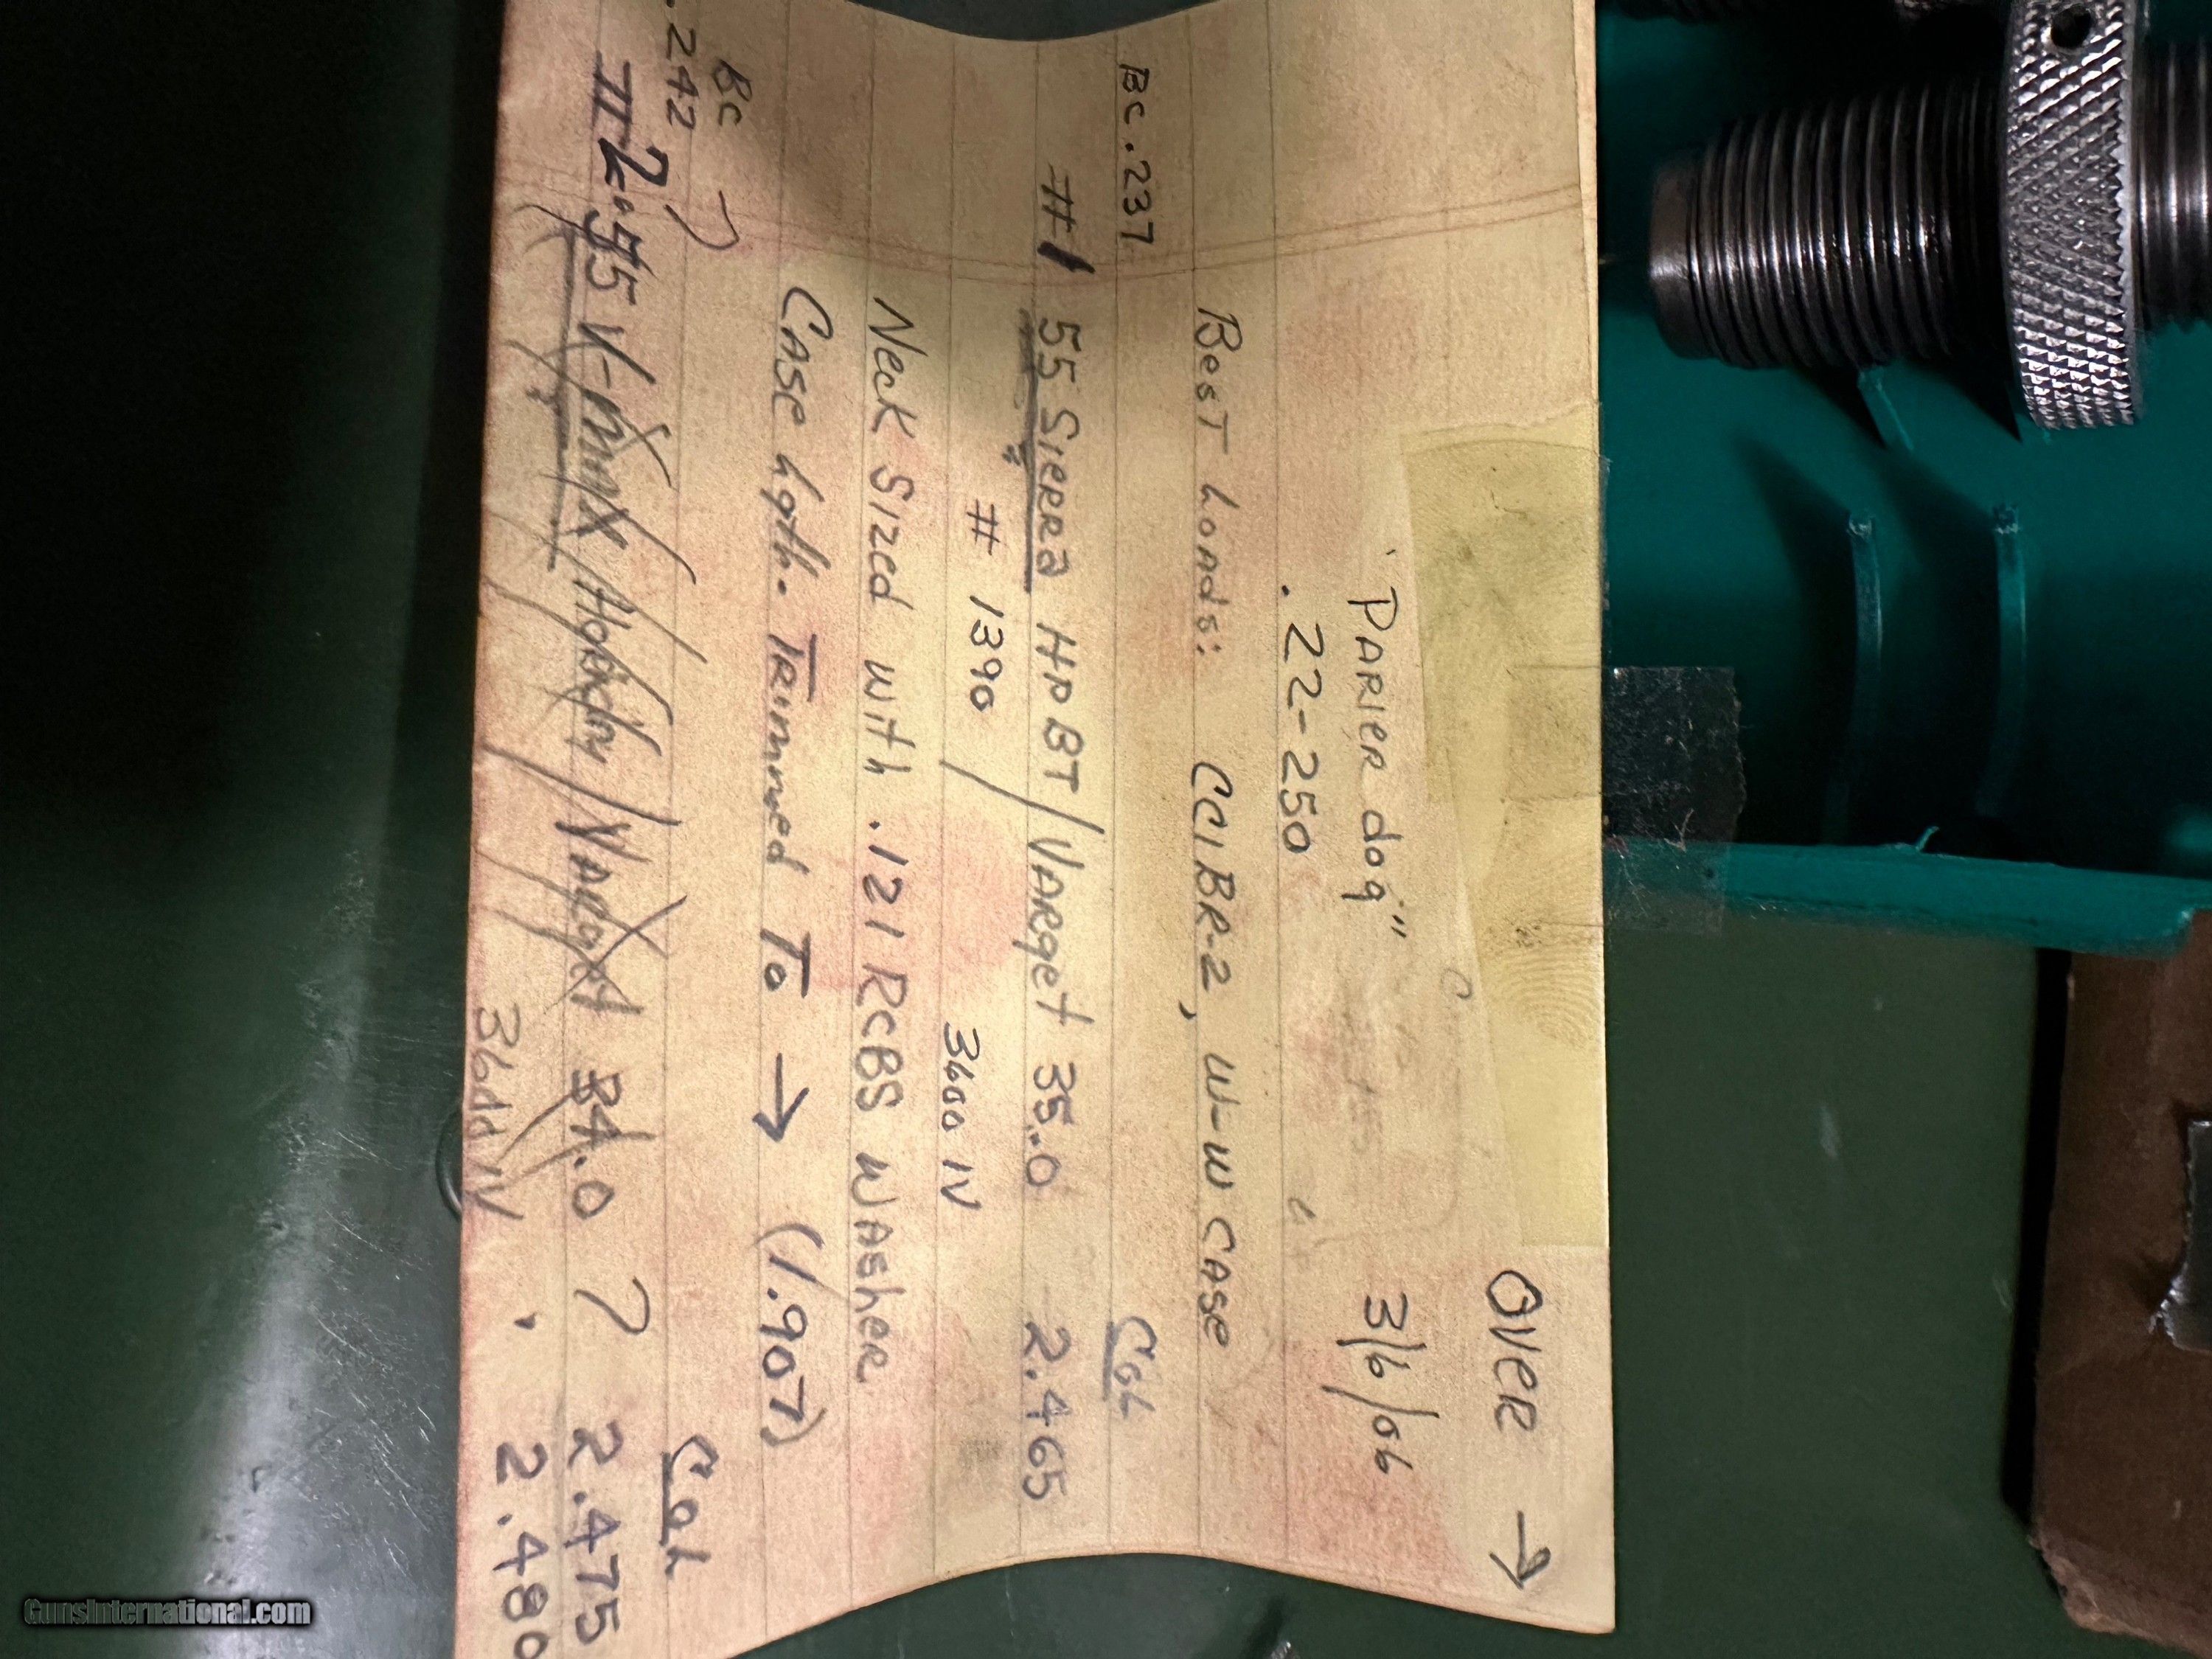 OVER →
"PARIER dog" 3/6/06
.22-250
BEST LOADS: CCI BR-2, W-W CASE
BC .237 COL
#1 55 SIERRA HPBT/VARGET 35.0 2.465
# 1390 3600 IV
NECK SIZED WITH .121 RCBS WASHER
CASE LGTH. TRIMMED TO → (1.907)
BC
.242 ? COL
#2. 55 V-MAX/Hornady/VARGET 34.0 ? 2.475
36 IV 2.480
GunsInternational.com